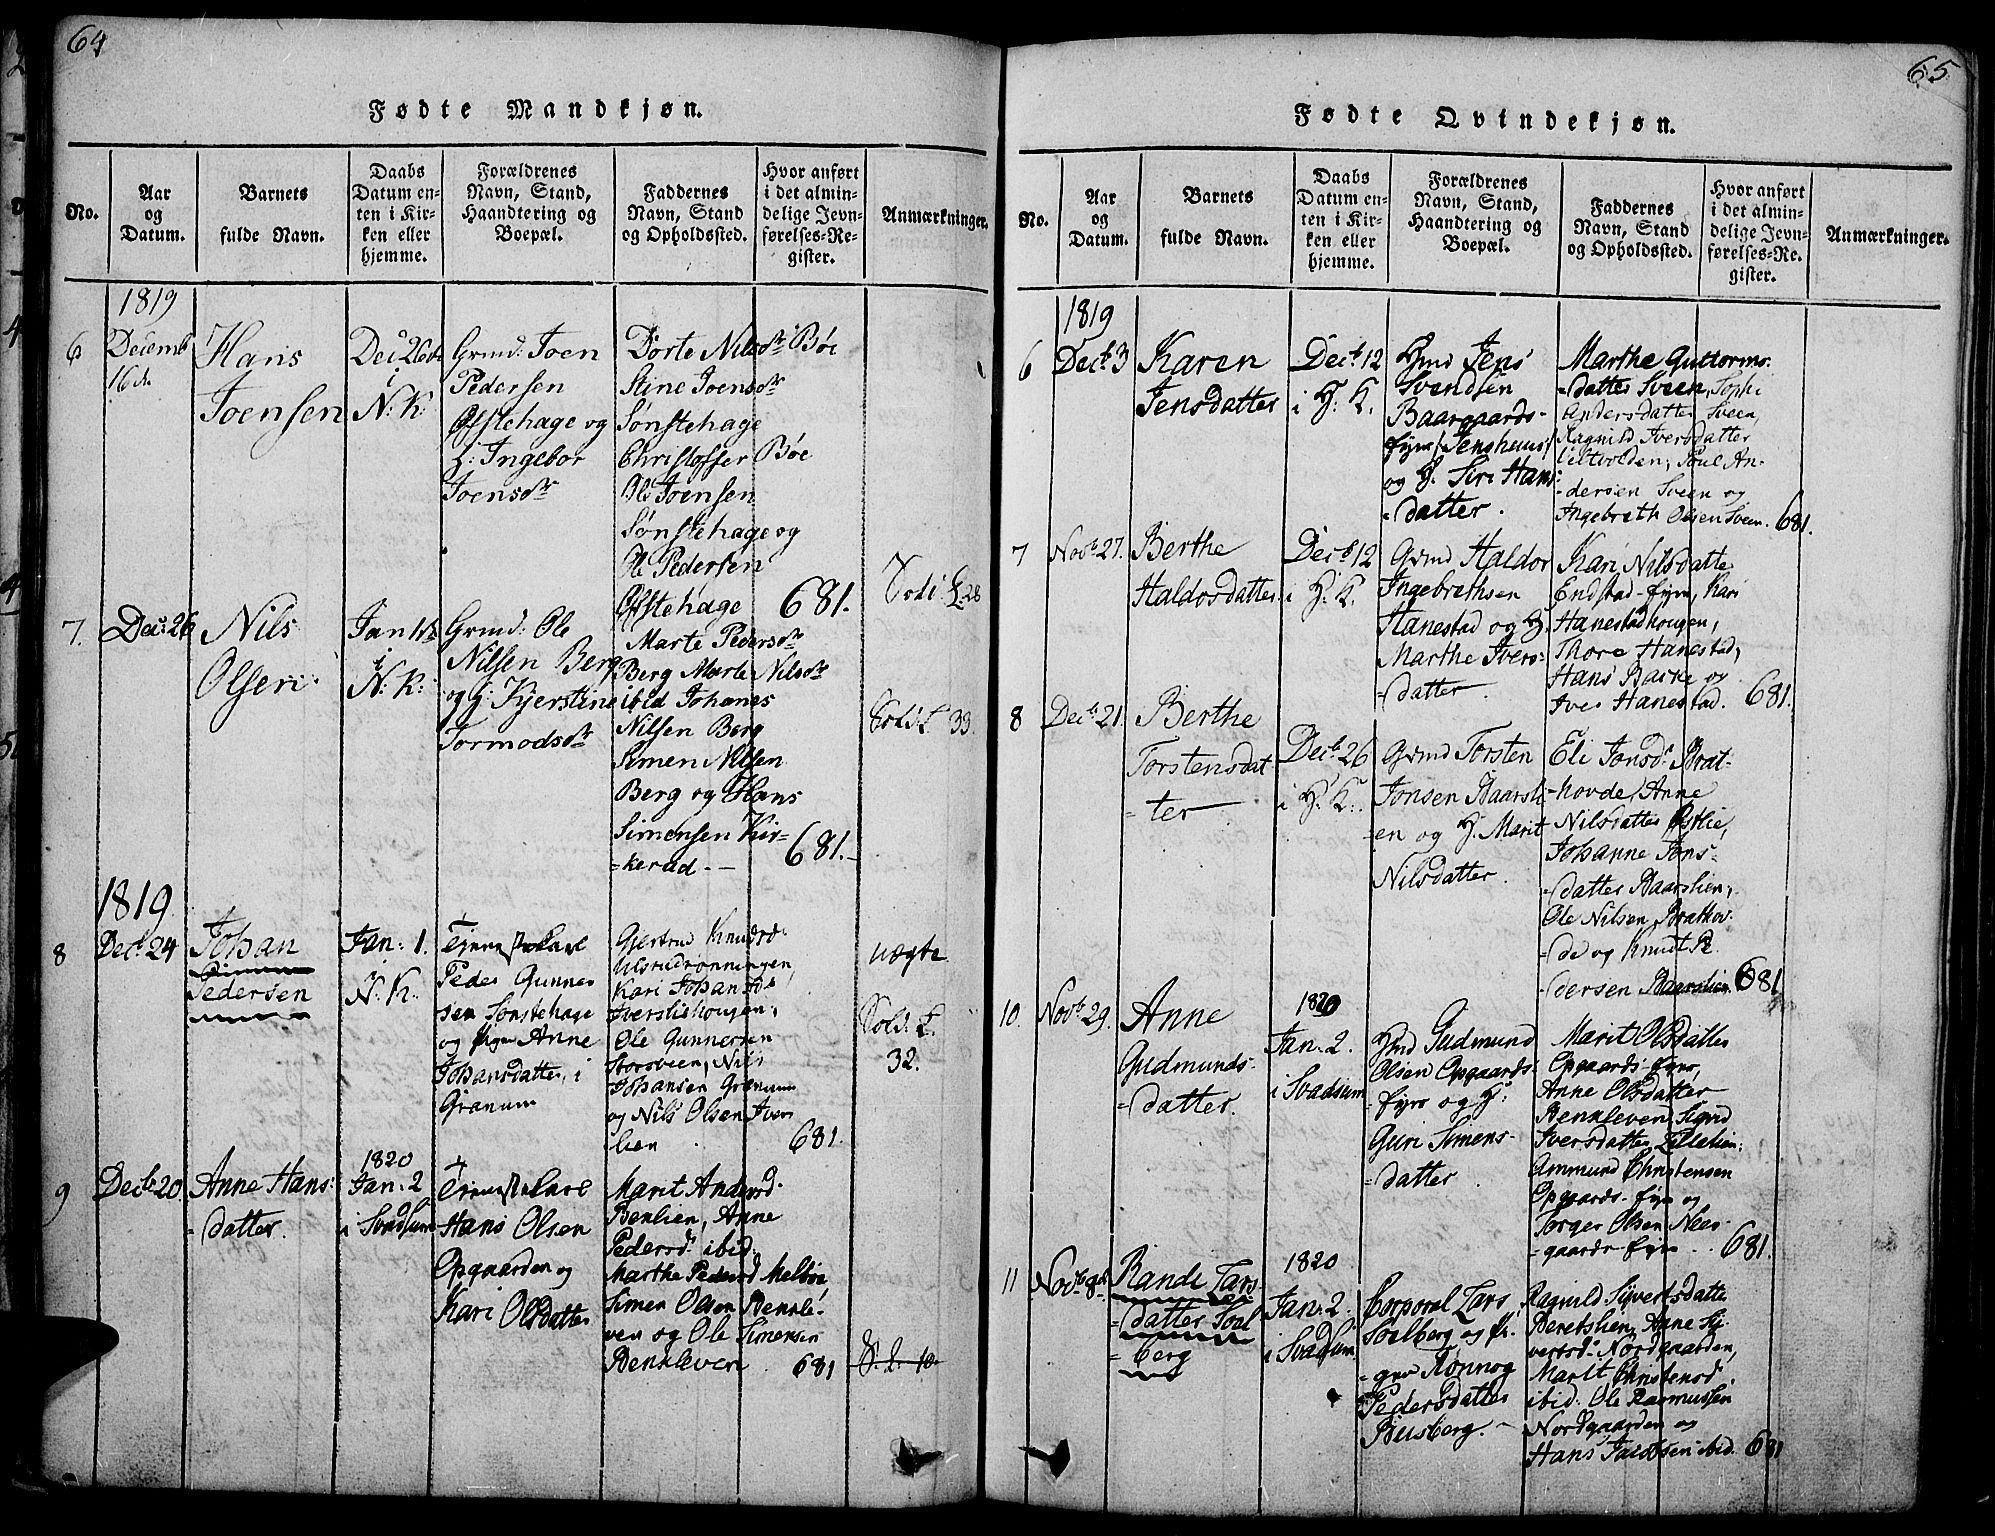 64
Fødte Mandkjøn.
No.
Aar
og
Datum.
Barnets
fulde Navn.
Daabs
Datum en-
ten i Kir-
ken eller
hjemme.
Forældrenes
Navn, Stand,
Haandtering og
Boepæl.
Faddernes
Navn, Stand
og Opholdssted.
Hvor anført
i det almin-
delige Jevn-
førelses-Re-
gister.
Anmærkninger.
1819
6
Decemb
16de
Hans
Joensen
Dec 26de
i
N: K:
Grmd: Joen
Pedersen
Offstehage og
H: Ingebor
Joensdtr
Dorte Nilsdtr Bøe
Stine Joensdtr
Sønstehage
Christoffer Bøe
Ole Joensen
Sønstehage og
Ole Pedersen
Offstehage
681.
7.
Dec: 26
Nils
Olsen
Jan 1ste
i
N: K:
Grmd: Ole
Nilsen Berg
og H: Kjerstine
Tormodsdtr
Marte Pedersdtr
Berg Marte Nilsdtr
ibid Johanes
Nilsen Berg
Simen Nilsen
Berg og Hans
Simensen Kir-
=kerud. —
681.
33
1819
8
Decb 24
Johan
Pedersen
Jan: 1.
N: K:
Peder Gunner
sen Sønstehage
og Pigen Anne
Johansdatter, i
Granum
Gertrud Knudsd:
Ulsrudrønningen,
Kari Johansd
Iverslihougen,
Ole Gunnersen
Storsveen, Nils
Johansen Granum
og Nils Olsen Iver
lien
681.
uægte
32.
9
Decb 20.
Anne Hans
=datter.
1820
Jan. 2
i Svadsum
Hans Olsen
Opgaarden og
Kari Olsdatter
Marit Andersd.
Benlien, Anne
Pedersd. ibid.
Marthe Pedersd Melbøe
Simen Olsen Benkle-
ven og Ole Simensen
Benkleven
681
65
Fødte Qvindekjøn.
No.
Aar
og
Datum.
Barnets
fulde Navn.
Daabs
Datum en-
ten i Kir-
ken eller
hjemme.
Forældrenes
Navn, Stand,
Haandtering og
Boepæl.
Faddernes
Navn, Stand
og Opholdssted.
Hvor anført
i det almin-
delige Jevn-
førelses-Re-
gister.
Anmærkninger.
1819
6
Decb. 3
Karen
Jensdatter
Decb. 12
i H. K.
Hmd Jens
Svendsen
Baargaards-
ejer (Jenshuus)
og H. Siri Hans
=datter.
Marthe Guttorms.
=datter Sveen, Sophi
Andersdatter Sveen,
Ragnild Iversdatter
Poul An-
dersen Sveen og
Ingebreth Olsen Sveen.
681.
7
Novb. 27.
Berthe
Haldorsdatter
Decb 12
i H. K.
Grmd Haldor
Ingebrethsen
Hanestad og H.
Marthe Ivers-
=datter.
Kari Nilsdatte
Endstad-ejer, Kari
Hanestadhougen,
Thore Hanestad,
Hans Bakke og
Iver Hanestad.
681.
8
Decb. 21.
Berthe
Torstensdat
=ter
Decb. 26
i H. K.
Grmd Torsten
Jonsen Baarsli
=en og H. Marit
Nilsdatter.
Eli Jonsd: Brat-
hovde, Anne
Nilsdatter Østlie,
Johanne Jons-
=datter Baarslien,
Ole Nilsen Brathov-
=de og Knudt Pe
=dersen Baarslien.
681
10.
Novb. 29.
Anne
Gudmunds-
=datter.
1820
Jan. 2.
i Svadsum
Hmd Gudmund
Olsen Opgaards-
=ejer og H:
Guri Simens-
=datter
Marit Olsdatter
Opgaards-ejer,
Anne Olsdatter
Benkleven, Sigrid
Iversdatter
Ammund Christensen
Opgaards-ejer og
Torger Olsen Neer-
=gaards-ejer
681.
11
Novb 8de
Rande Lars
=datter Soel
=berg
1820
Jan. 2.
i Svadsum
Corporal Lars
Soelberg og Pi-
=gen Rønnog
Pedersdatter
Biesberg. —
Ragnild Sÿvertsdatte
Beretslien, Anne Sÿ-
vertsd: Nordgaarden,
Marit Christensd.
ibid. Ole Rasmussen
Nordgaarden og
Hans Jacobsen ibid.
681